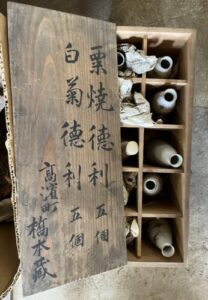 栗焼徳利 五個
白菊徳利 五個
高濱町 橋本蔵